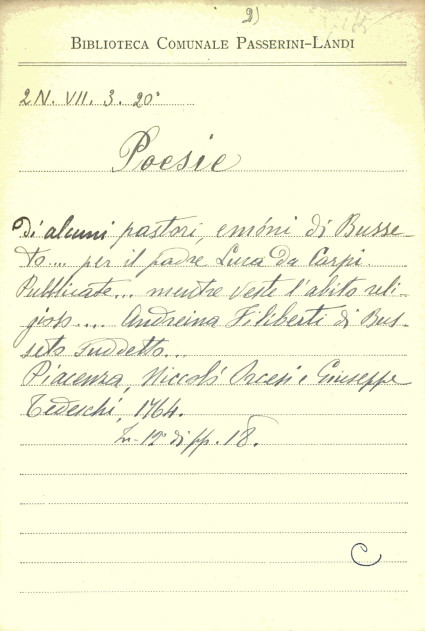 2)
BIBLIOTECA COMUNALE PASSERINI-LANDI
2N. VII. 3. 20°
Poesie
Di alcuni pastori, emóni di Busse-
to.... per il padre Luca Da Carpi.
Pubblicate... mentre veste l'abito reli-
gioso.... Andreina Filiberti di Bus-
seto suddetto...
Piacenza, Niccolò Orcesi e Giuseppe
Tedeschi, 1764.
In-12° di pp. 18.
C